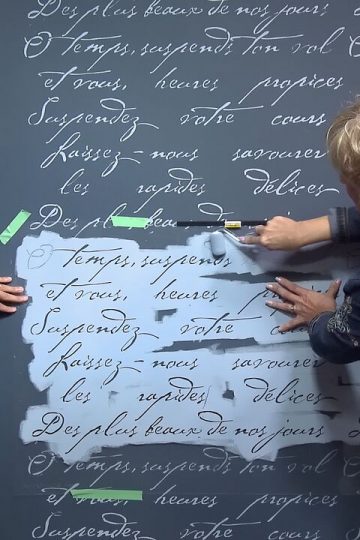 Des plus beaux de nos jours
O temps, suspends ton vol
et vous, heures propices
Suspendez votre cours
Laissez-nous savourer
les rapides délices
Des pl beau
O temps, suspends
et vous, heures
Suspendez votre
Laissez-nous savourer
les rapides délices
Des plus beaux de nos jours
O temps, suspends ton vol
et vous, heures propices
Suspendez votre cours